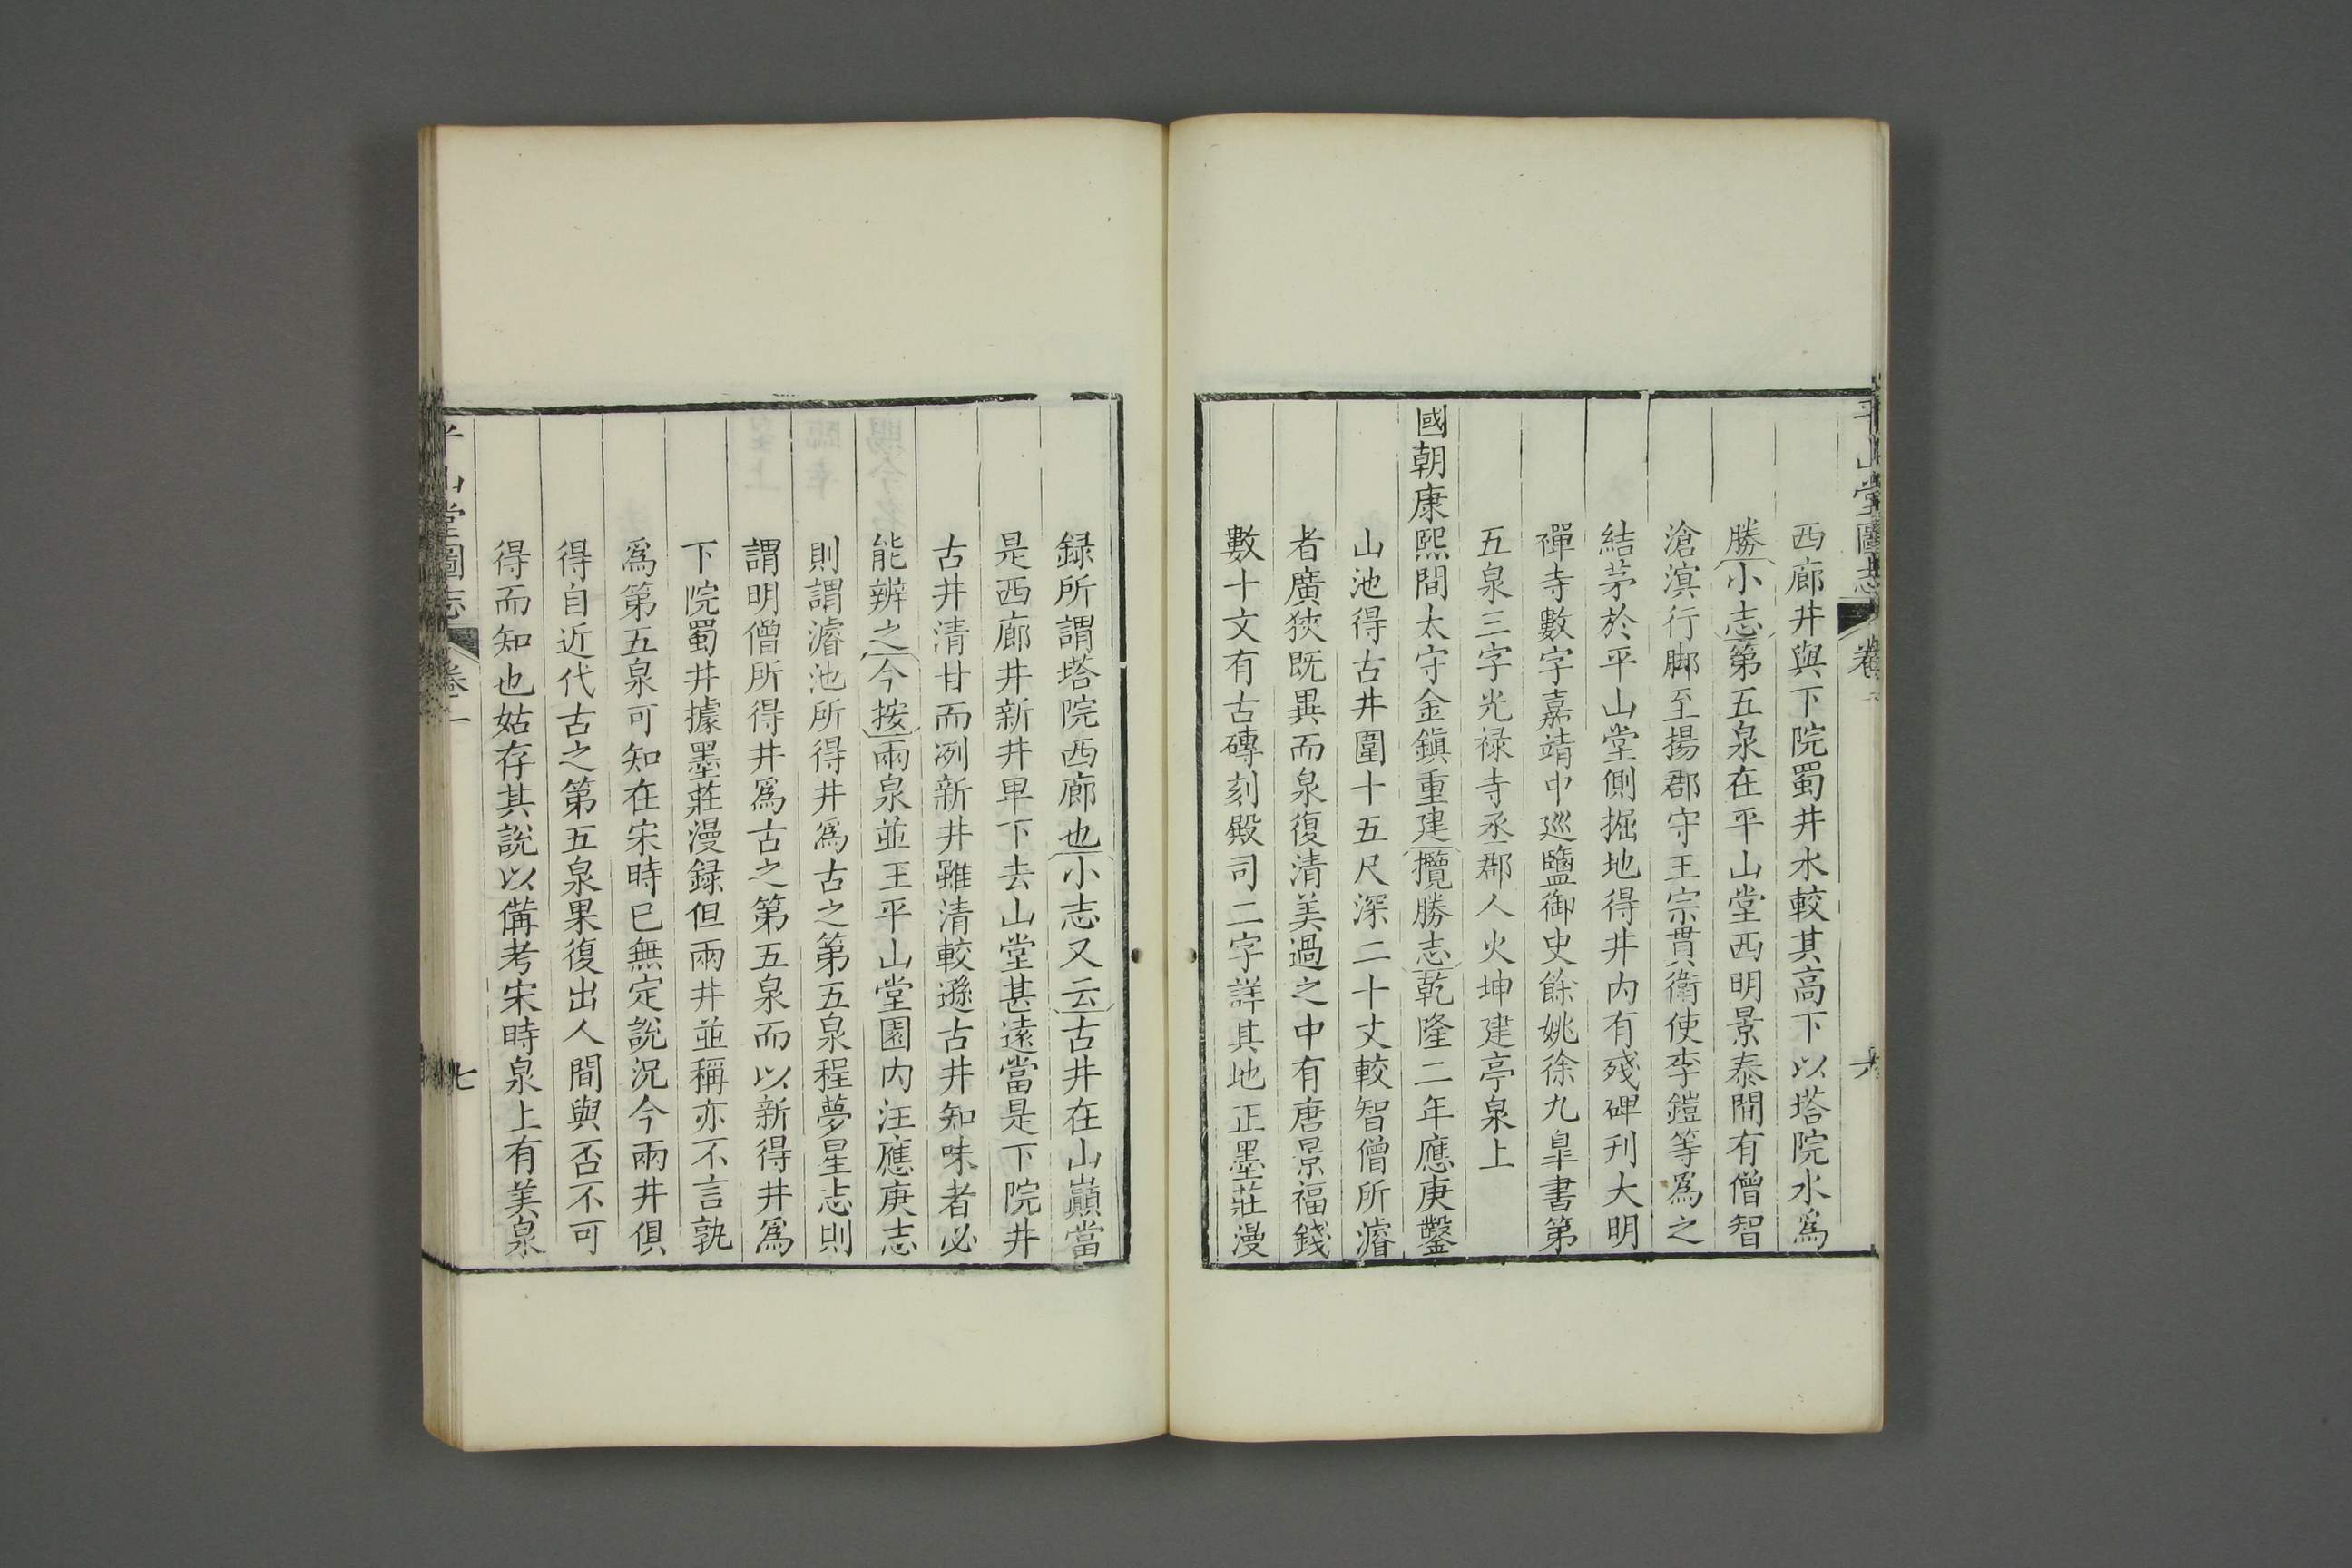 平山堂圖志 卷一 六
西廊井與下院蜀井水較其高下以塔院水爲
勝小志第五泉在平山堂西明景泰間有僧智
滄溟行脚至揚郡守王宗貫衛使李鎧等爲之
結茅於平山堂側掘地得井内有殘碑刊大明
禪寺數字嘉靖中巡鹽御史餘姚徐九臯書第
五泉三字光禄寺丞郡人火坤建亭泉上
國朝康熙間太守金鎮重建攬勝志乾隆二年應庚鑿
山池得古井圍十五尺深二十丈較智僧所濬
者廣狹既異而泉復清美過之中有唐景福錢
數十文有古磚刻殿司二字詳其地正墨莊漫
録所謂塔院西廊也小志又云古井在山巔當
是西廊井新井卑下去山堂甚遠當是下院井
古井清甘而冽新井雖清較遜古井知味者必
能辨之今按兩泉並王平山堂園内汪應庚志
則謂濬池所得井爲古之第五泉程夢星志則
謂明僧所得井爲古之第五泉而以新得井爲
下院蜀井據墨莊漫録但兩井並稱亦不言孰
爲第五泉可知在宋時已無定說況今兩井俱
得自近代古之第五泉果復出人間與否不可
得而知也姑存其說以備考宋時泉上有美泉
平山堂圖志 卷一 七